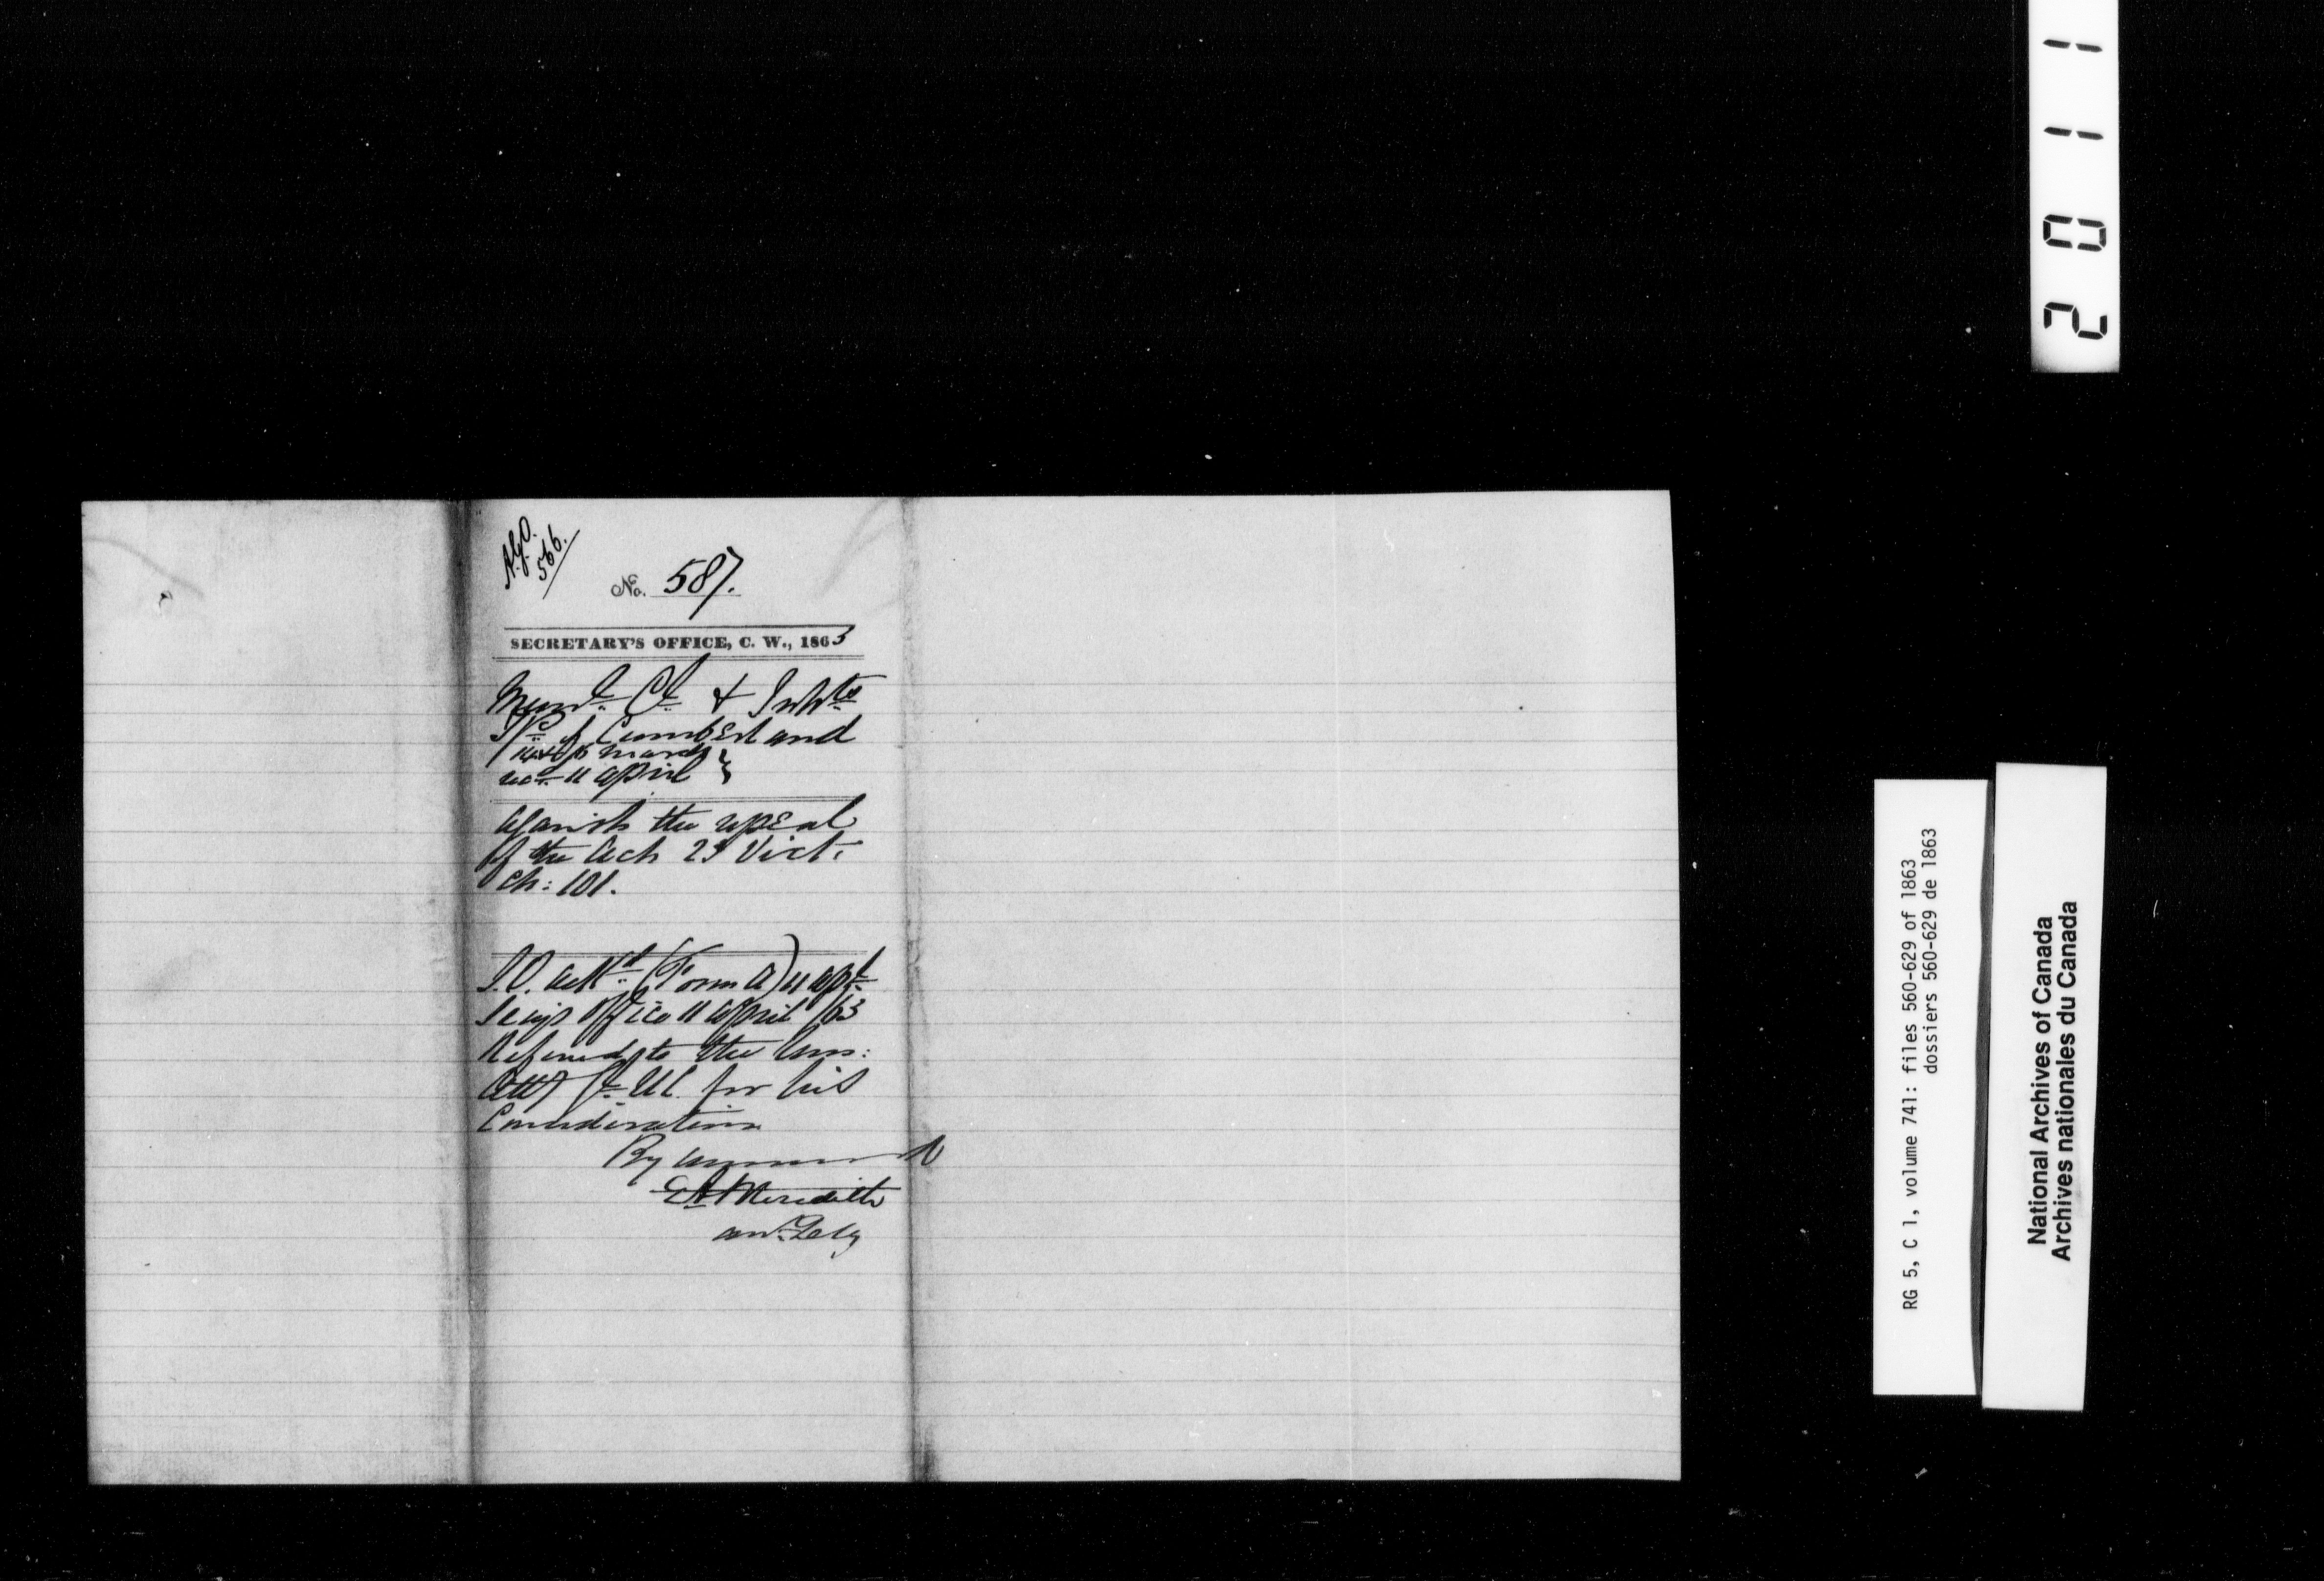 A.G.O.
566.
No. 587.
SECRETARY'S OFFICE, C. W., 1863
Munl. Cl. & Inhts
of Cumberland
March
recd 11 April
Against the repeal
of the Act 23 Vict:
Ch: 101.
ackd. (Form A) 11 Apl.
Secys Office 11 April /63
Referred to the Hon:
Atty Gl. U.C. for his
Consideration
By Command
E A Meredith
Asst. Secy
2011
RG 5, C 1, volume 741: files 560-629 of 1863
dossiers 560-629 de 1863
National Archives of Canada
Archives nationales du Canada